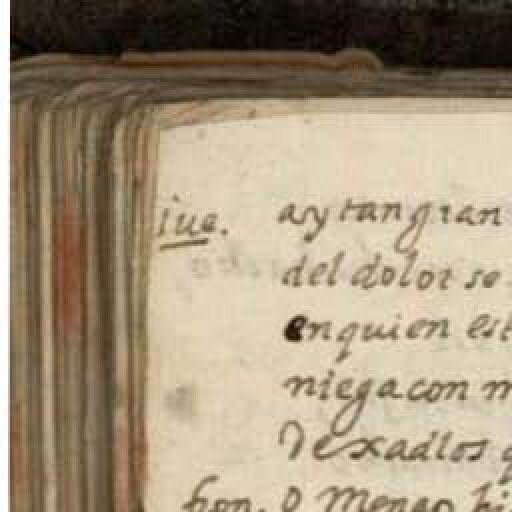 iue. ay tan gran
del dolor se
en quien est
niega con m
Dexadlos q
fion. O Menga hi